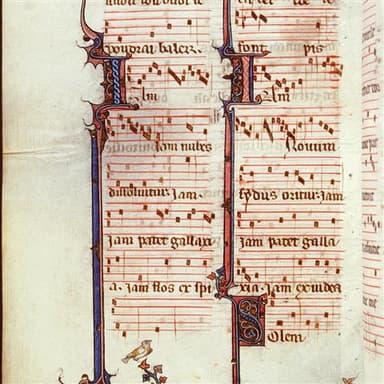 uoudrai baler.
Iam
iam nubes
dissoluitur. iam
iam patet gallaxi
a. iam flos ex spi
font pis
Iam
nouum
sydus oritur. iam
iam patet galla
xia. iam ex iudea
Solem